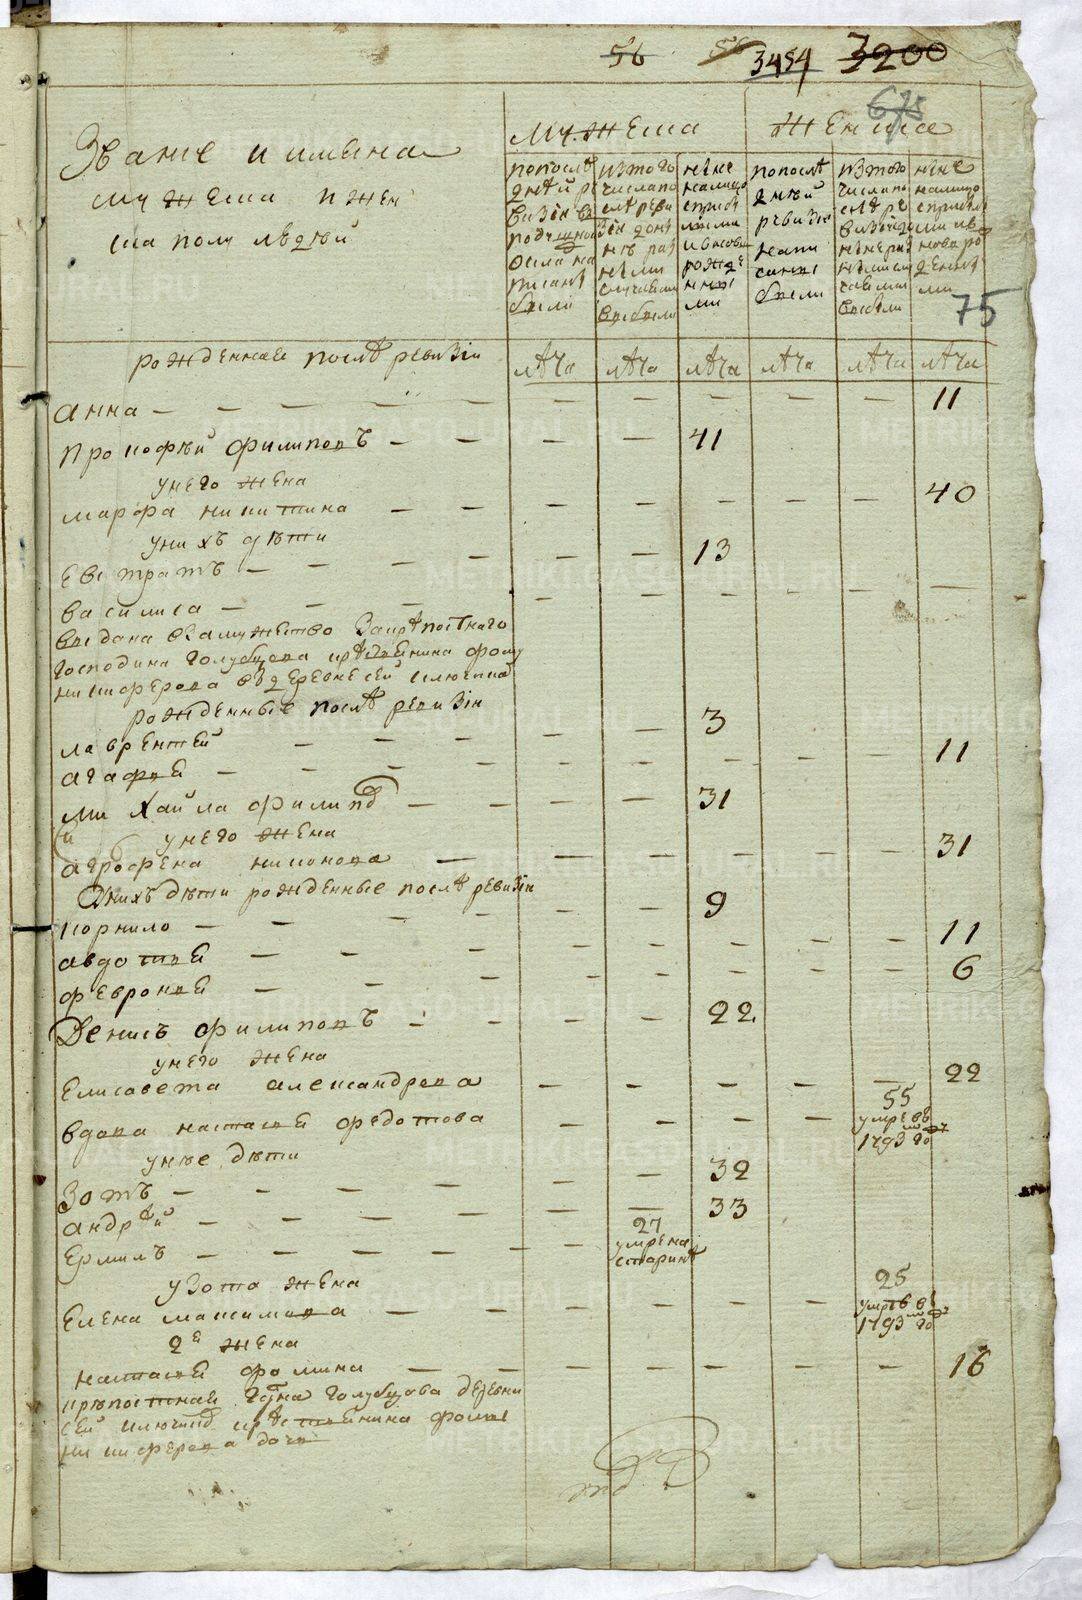 56 56 3454 3200
675
Званiе и имяна
мужеска и жен
ска полу людѣй
Мужеска
Женска
попослѣ
дней ре
визiи в
подушной
оклад на
писаны
были
изтого
числа по
слѣ реви
зiи до
разными
случаями
выбыли
ныне
налицо
спри
лыми
и вновь
рожде
нны
ми
попослѣ
дней
ревизiи
напи
саны
были
изтого
числа по
слѣ ре
визiи
разными
случаями
выбыли
ныне
налицо
спри
ми и в
новоро
жденны
ми
75
рожденная послѣ ревизiи
лѣта лѣта лѣта лѣта лѣта лѣта
анна — 11
Прокофѣй Филиповъ — 41
унего жена
марфа никитина — 40
унихъ дѣти
Евстратъ — 13
василиса —
выдана взамужество закрѣпостнаго
господина голубцова крѣстьянина фому
никифорова вдеревне сей ключикѣ
рожденные послѣ ревизiи
лаврентей — 3
агафья — 11
Михайла Филипов — 31
унего жена
агрофена никонова — 31
Унихъ дѣти рожденные послѣ ревизiи
корнило — 9
авдотья — 11
февронья — 6
Денисъ Филиповъ — 22
унего жена
Елисавета александрова — 22
вдова настасья федотова — 55
умре въ
1793 го
унее дѣти
Зотъ — 32
андрѣй — 33
Ермилъ — 27
умре на
старинѣ
узота жена
Елена максимова — 25
умре въ
1793 го
2я жена
настасья фомина — 16
крѣпостная гдна голубцова деревни
сей ключики крестьянина фомы
никифорова дочь